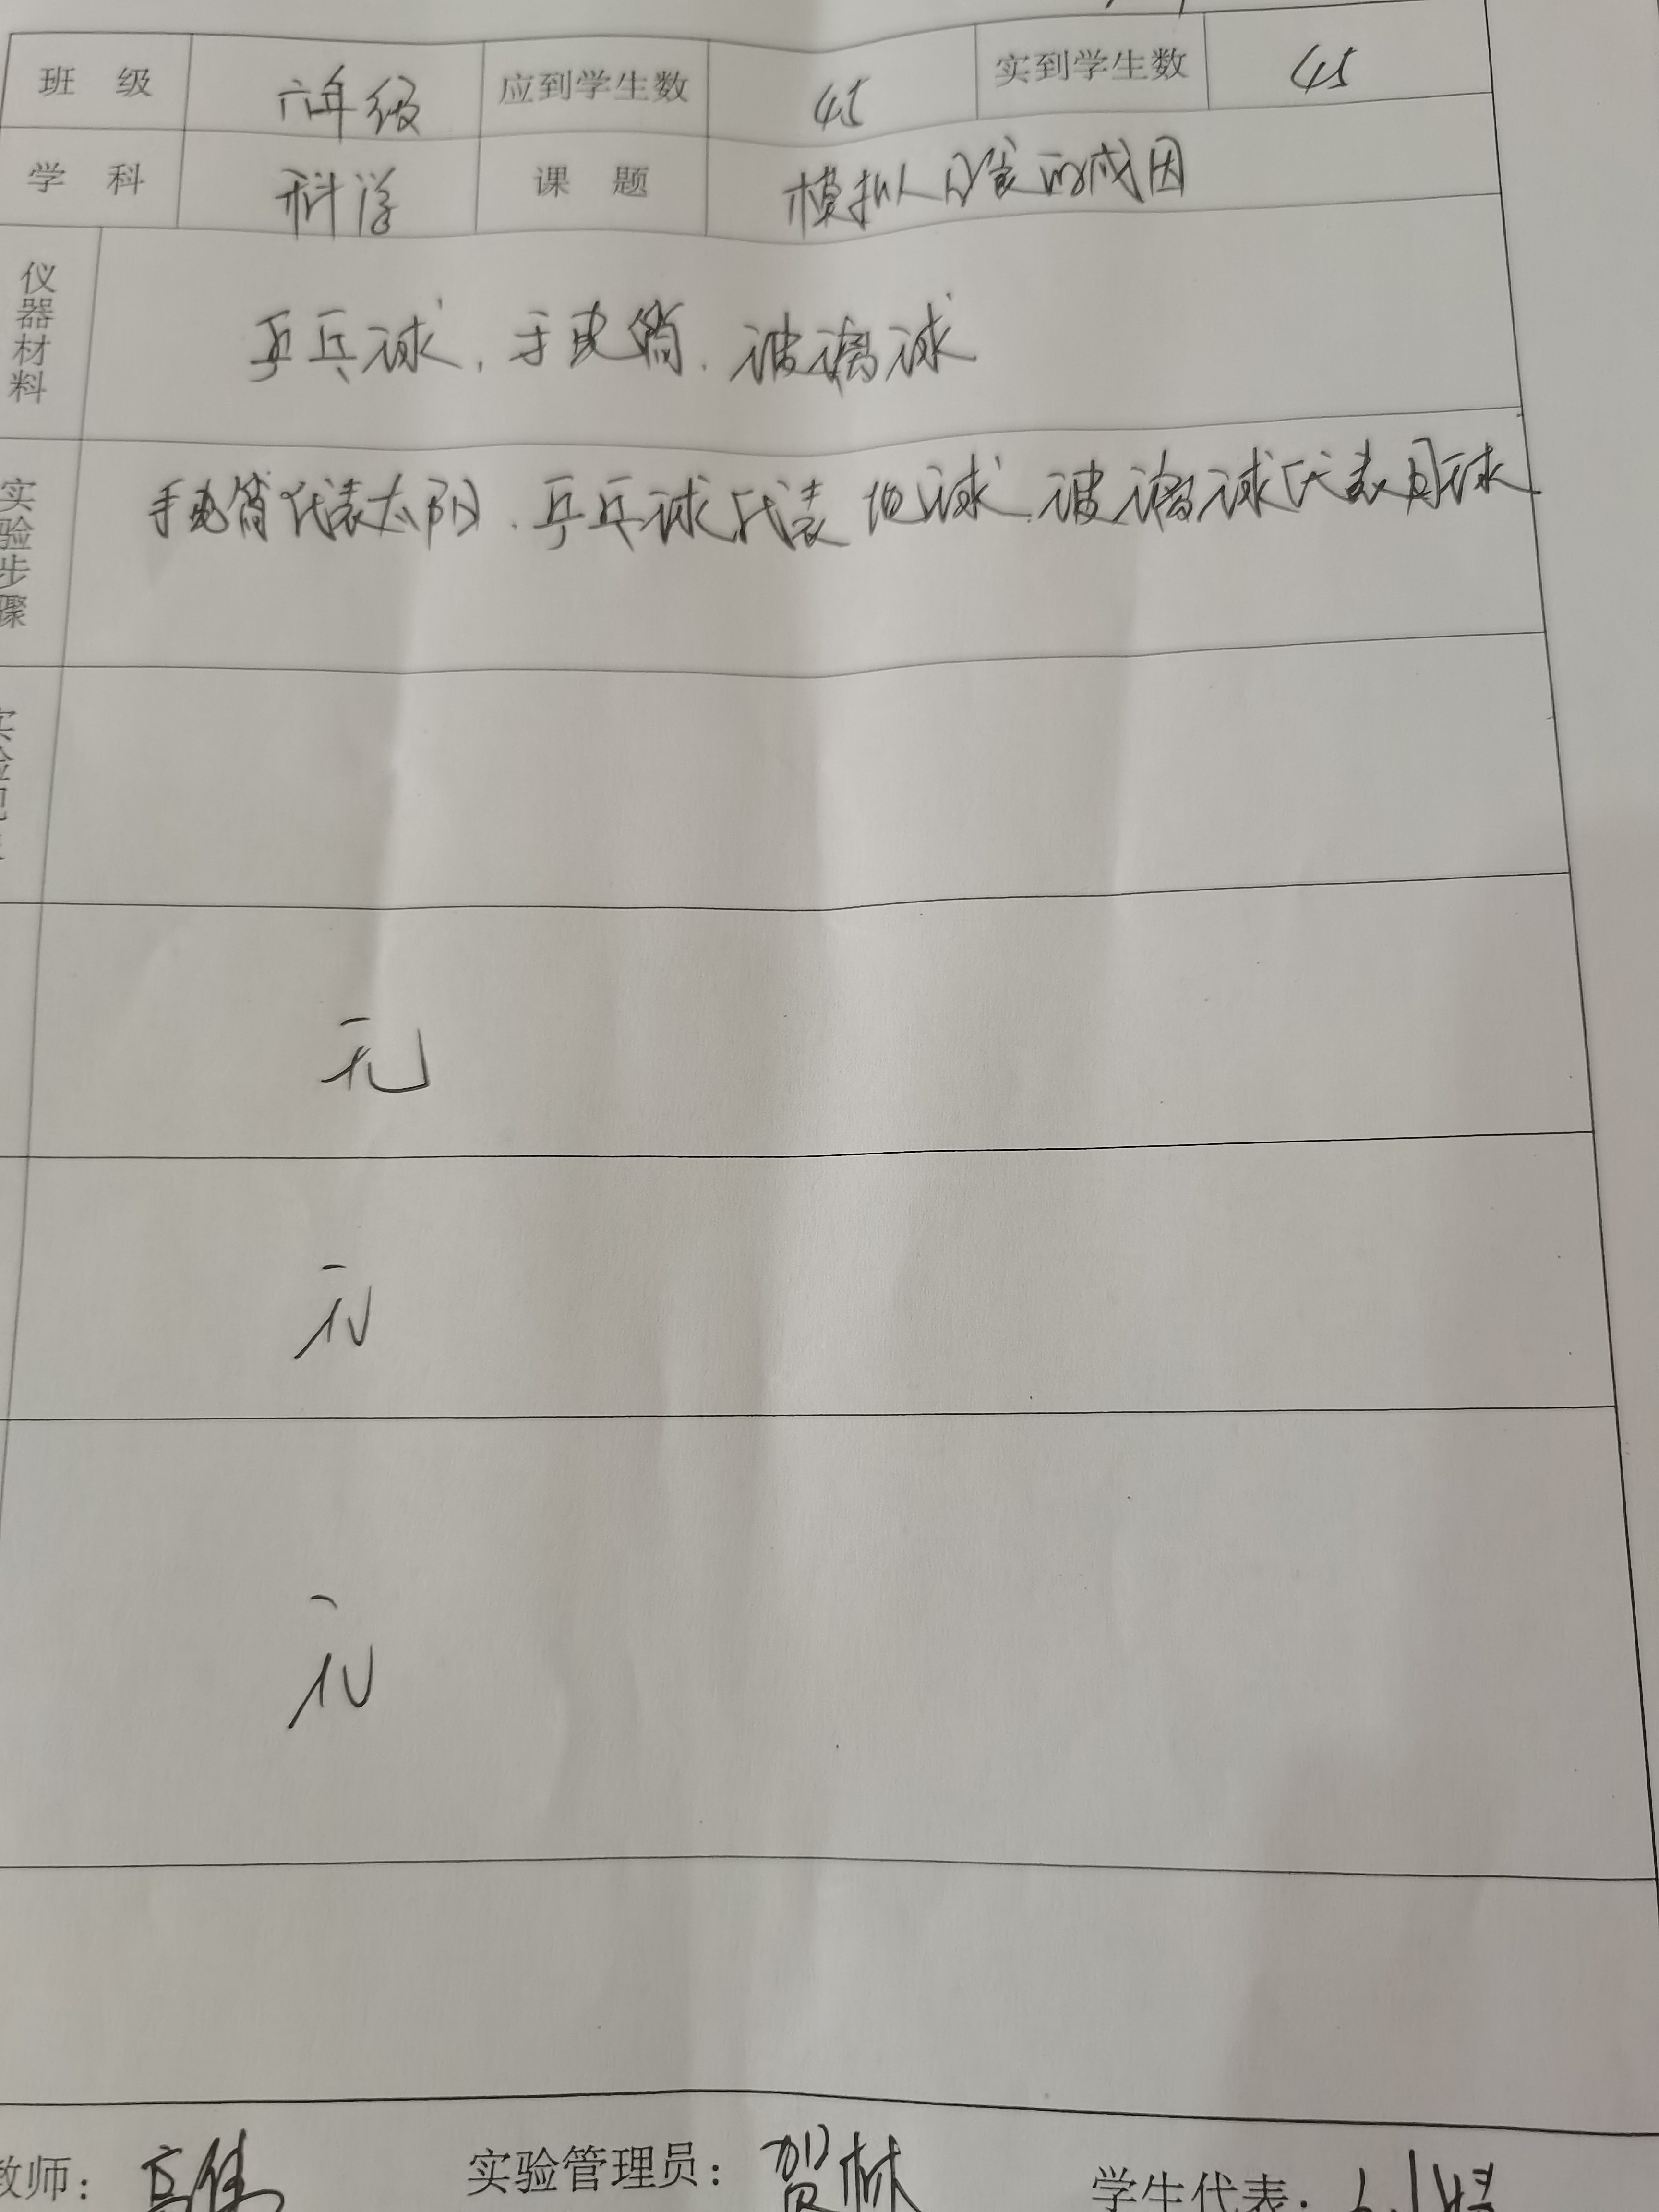 班 级 六年级 应到学生数 45 实到学生数 45
学 科 科学 课 题 模拟日食的成因
仪器材料 乒乓球、手电筒、玻璃球
实验步骤 手电筒代表太阳、乒乓球代表地球、玻璃球代表月球
无
无
无
教师： 实验管理员：贺林 学生代表：